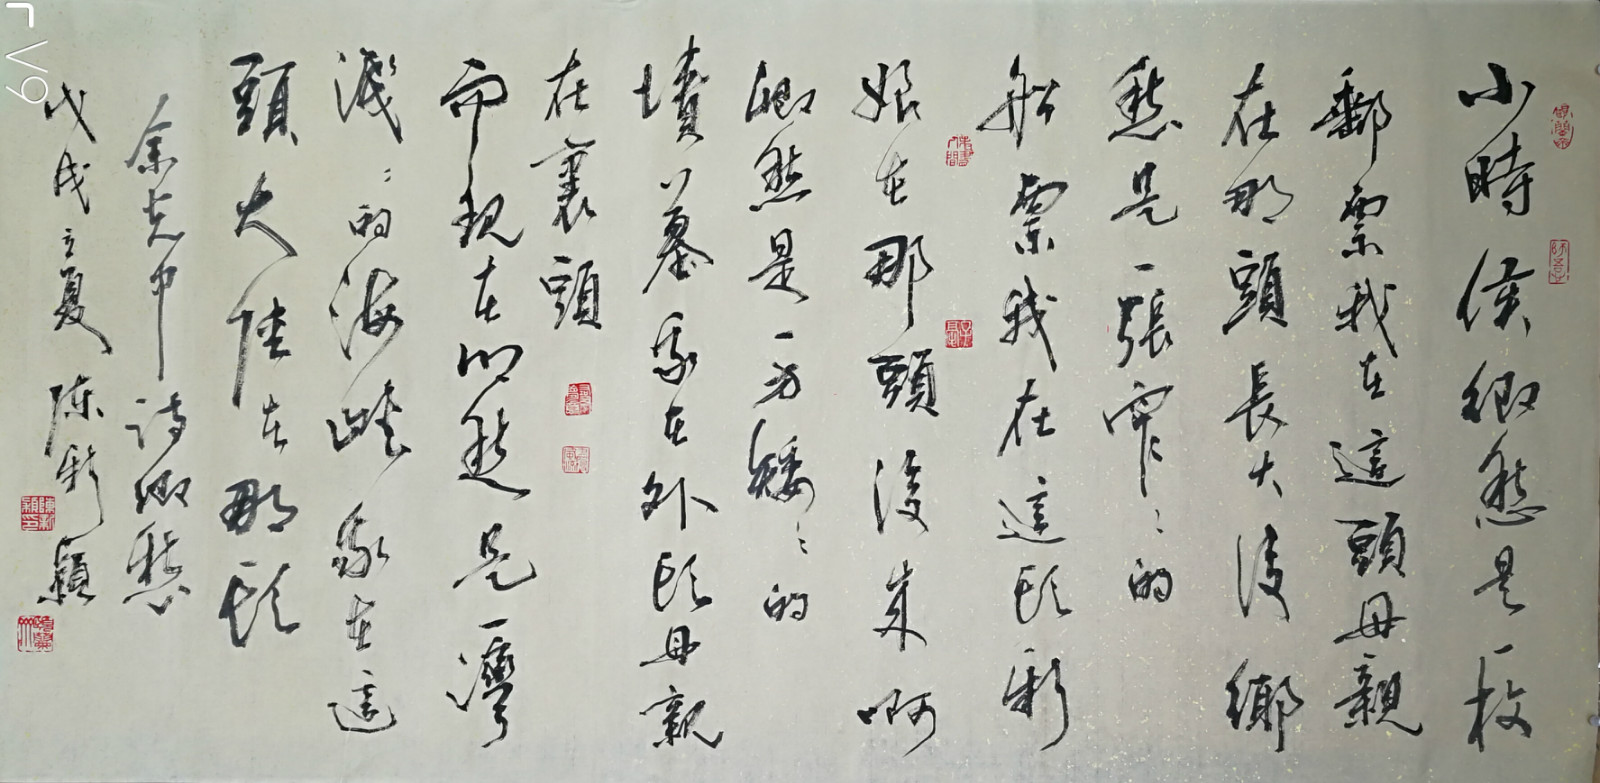 小時候鄉愁是一枚
郵票我在這頭母親
在那頭長大後鄉
愁是一張窄〻的
船票我在這頭新
娘在那頭後來啊
鄉愁是一方矮〻的
墳墓我在外頭母親
在裏頭
而現在鄉愁是一灣
淺〻的海峽我在這
頭大陸在那頭
余光中詩鄉愁
戊戌立夏 陈新穎
V9